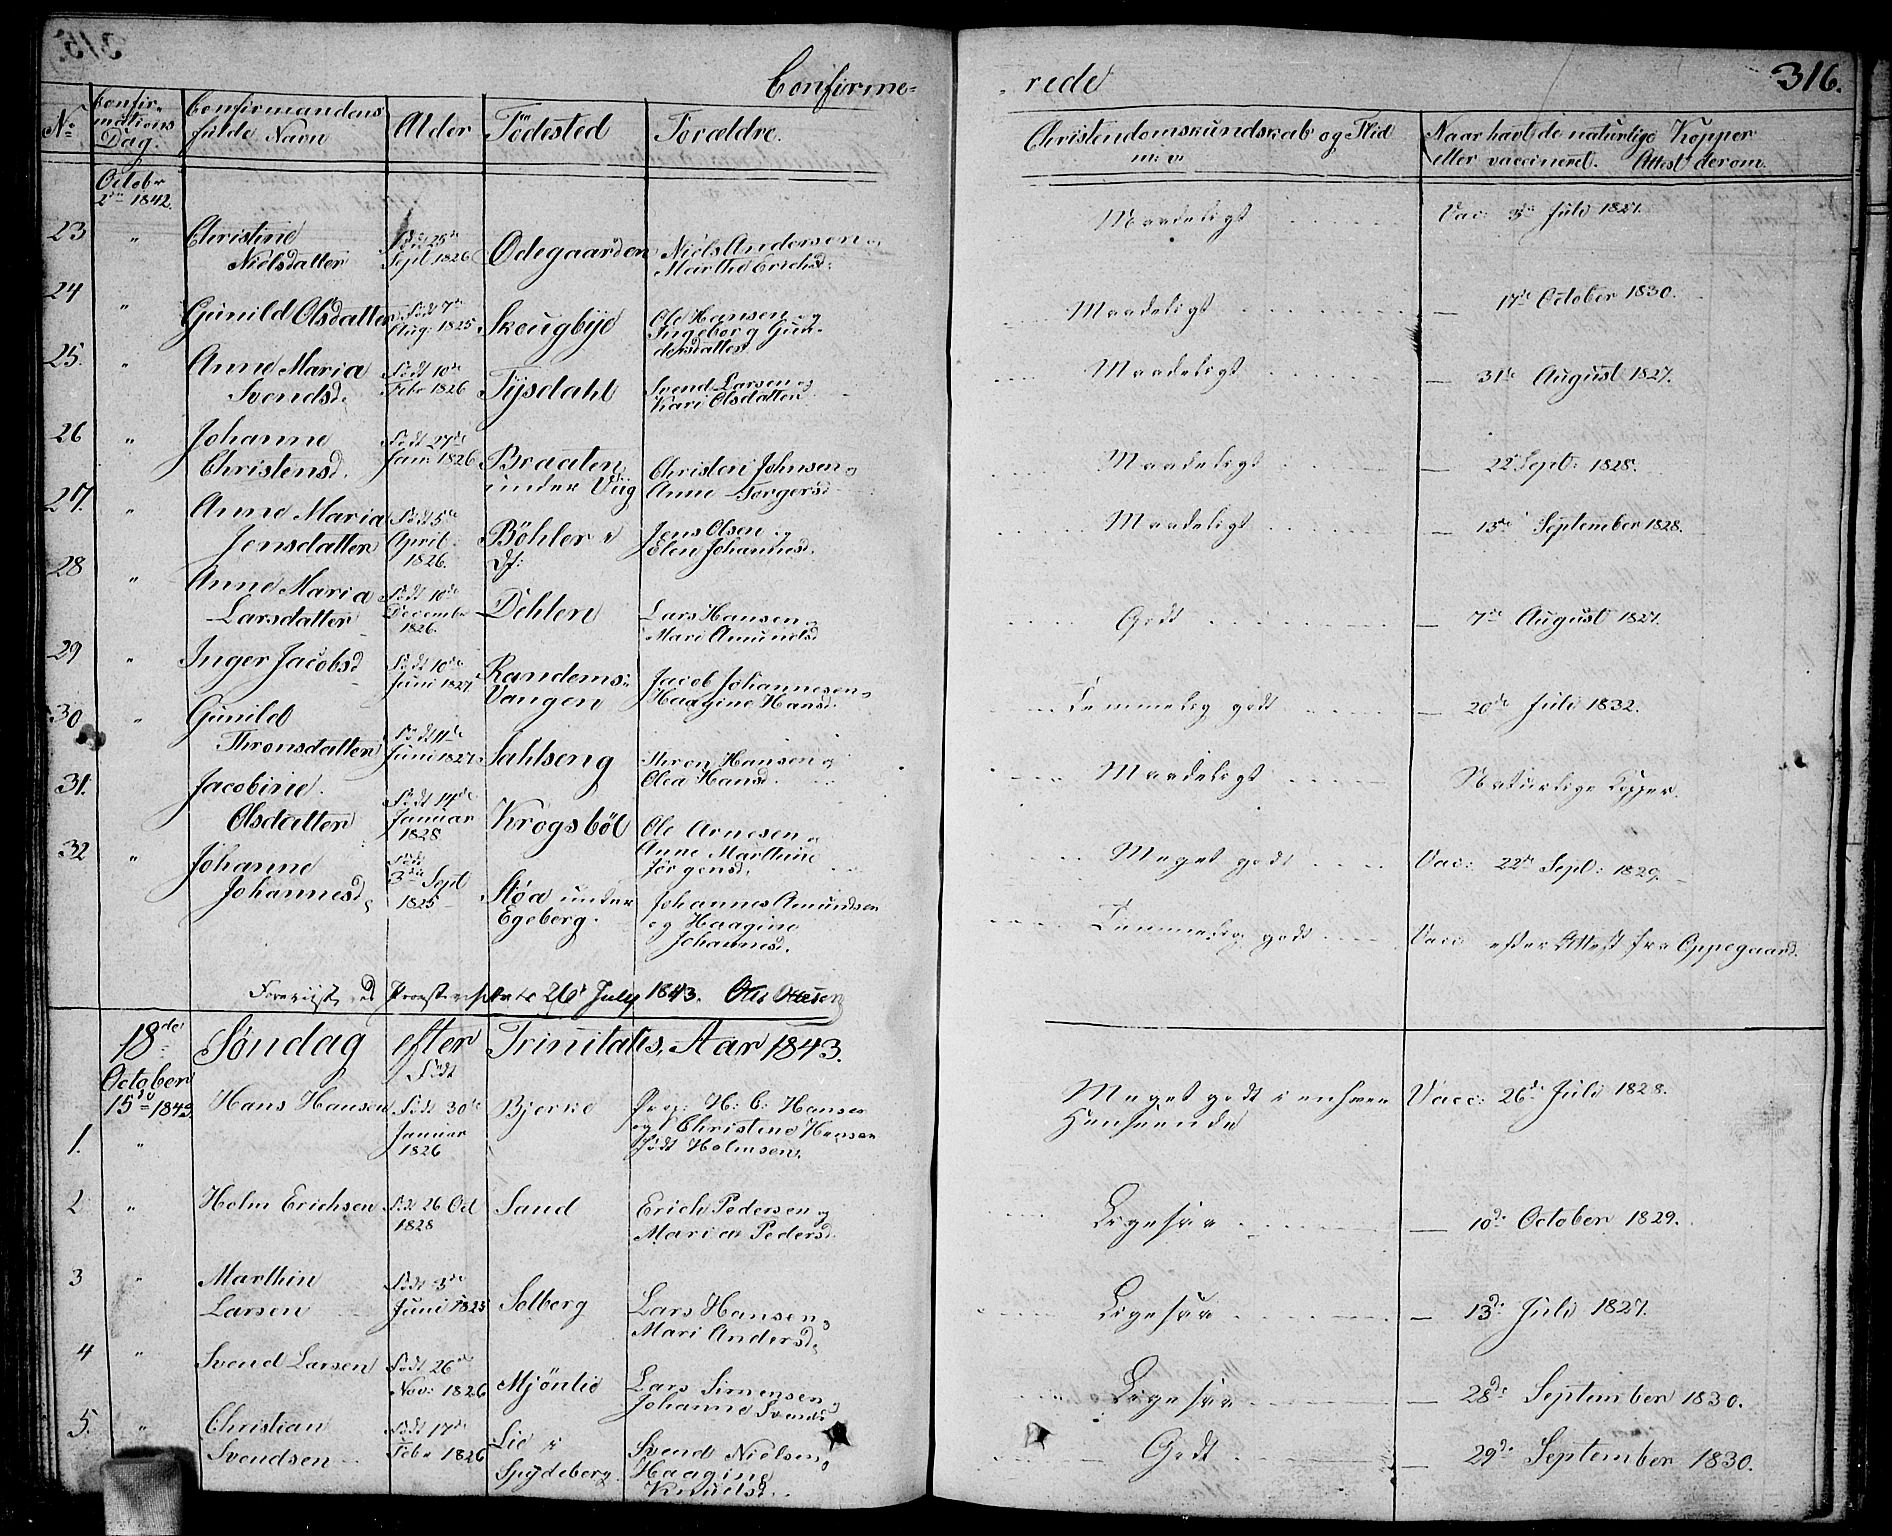 Confirme=
rede
316.
No
Confir-
mations
Dag.
Confirmandens
fulde Navn
Alder
Födested
Forældre.
Christendomskundskab og Flid
m: v:
Naar havt de naturlige Kopper
eller vaccineret. Attest derom.
Octobr
2den 1842.
23 " Christine
Nielsdatter
Födt 25de
Sept 1826
Ödegaarden
Niels Andersen og
Marthe Erichsd:
Maadeligt
Vac: 3de Juli 1827.
24 " Gunild Olsdatter
Födt 7de
Aug: 1825
Skougbye
Ole Hansen og
Ingeborg Gun-
dersdatter
Maadeligt
17de October 1830.
25. " Anne Maria
Svendsd.
Födt 10de
Febr 1826
Tysdahl
Svend Larsen og
Kari Olsdatter
Maadeligt
— 31te August 1827.
26 " Johanne
Christensd.
Födt 27de
Jan: 1826
Braaten
under Viig
Christen Johnsen og
Anne Torgersd
Maadeligt
— 22 Sept: 1828.
27. " Anne Maria
Jensdatter
Födt 5te
April
1826.
Böhler i
Df:
Jens Olsen og
Elen Johannesd.
Maadeligt
— 13de September 1828.
28 " Anne Maria
Larsdatter
Födt 10de
December
1826.
Dehlen
Lars Hansen og
Mari Amundsd
Godt
— 7de August 1827.
29 " Inger Jacobsd
Födt 10de
Juni 1827
Randems=
Vangen
Jacob Johannesen og
Haagine Hansd.
Temmelig godt
— 20de Juli 1832.
30 " Gunild
Thronsdatter
Födt 11te
Juni 1827
Sahlseng
Thron Hansen og
Olea Hansd.
Maadeligt
Naturlige Kopper.
31. Jacobine
Olsdatter
Födt 14de
Januar
1828
Krogsböl
Ole Arnesen og
Anne Marthine
Jörgensd.
Meget godt
Vac: 22de Sept: 1829.
32 " Johanne
Johannesd.
Födt
3die Sept
1825
Støa under
Egeberg.
Johannes Amundsen
og Haagine
Johannesd.
Temmelig godt
Vacc: efter Attest fra Oppegaard.
Foreviist ved 26de July 1843. Ottesen
18de Søndag efter Trinitatis, Aar 1843.
October
15de 1843
1. " Hans Hansen
Födt
Födt 30te
Januar
1826
Bjerke
Prop: H: C: Hansen
og Christine Hansen
födt Holmsen.
Meget godt i enhver
Henseende
Vacc: 26de Juli 1828.
2 " Holm Erichsen
Föd 26 Oct
1828
Sand
Erich Pedersen og
Maria Pedersd.
Ligesaa
— 10de October 1829.
3 " Marthin
Larsen
Födt 3de
Juni 1825
Solberg
Lars Hansen og
Mari Andersd.
Ligesaa
— 13de Juli 1827.
4 " Svend Larsen
Födt 26de
Nov: 1826
Mjönlie
Lars Simensen og
Johanne Svendsd
Ligesaa
— 28de September 1830.
5. " Christian
Svendsen
Födt 17de
Febr 1826
Lie i
Spydeberg
Svend Nielsen og
Haagine
Knudsd.
Godt
— 29de September 1830.